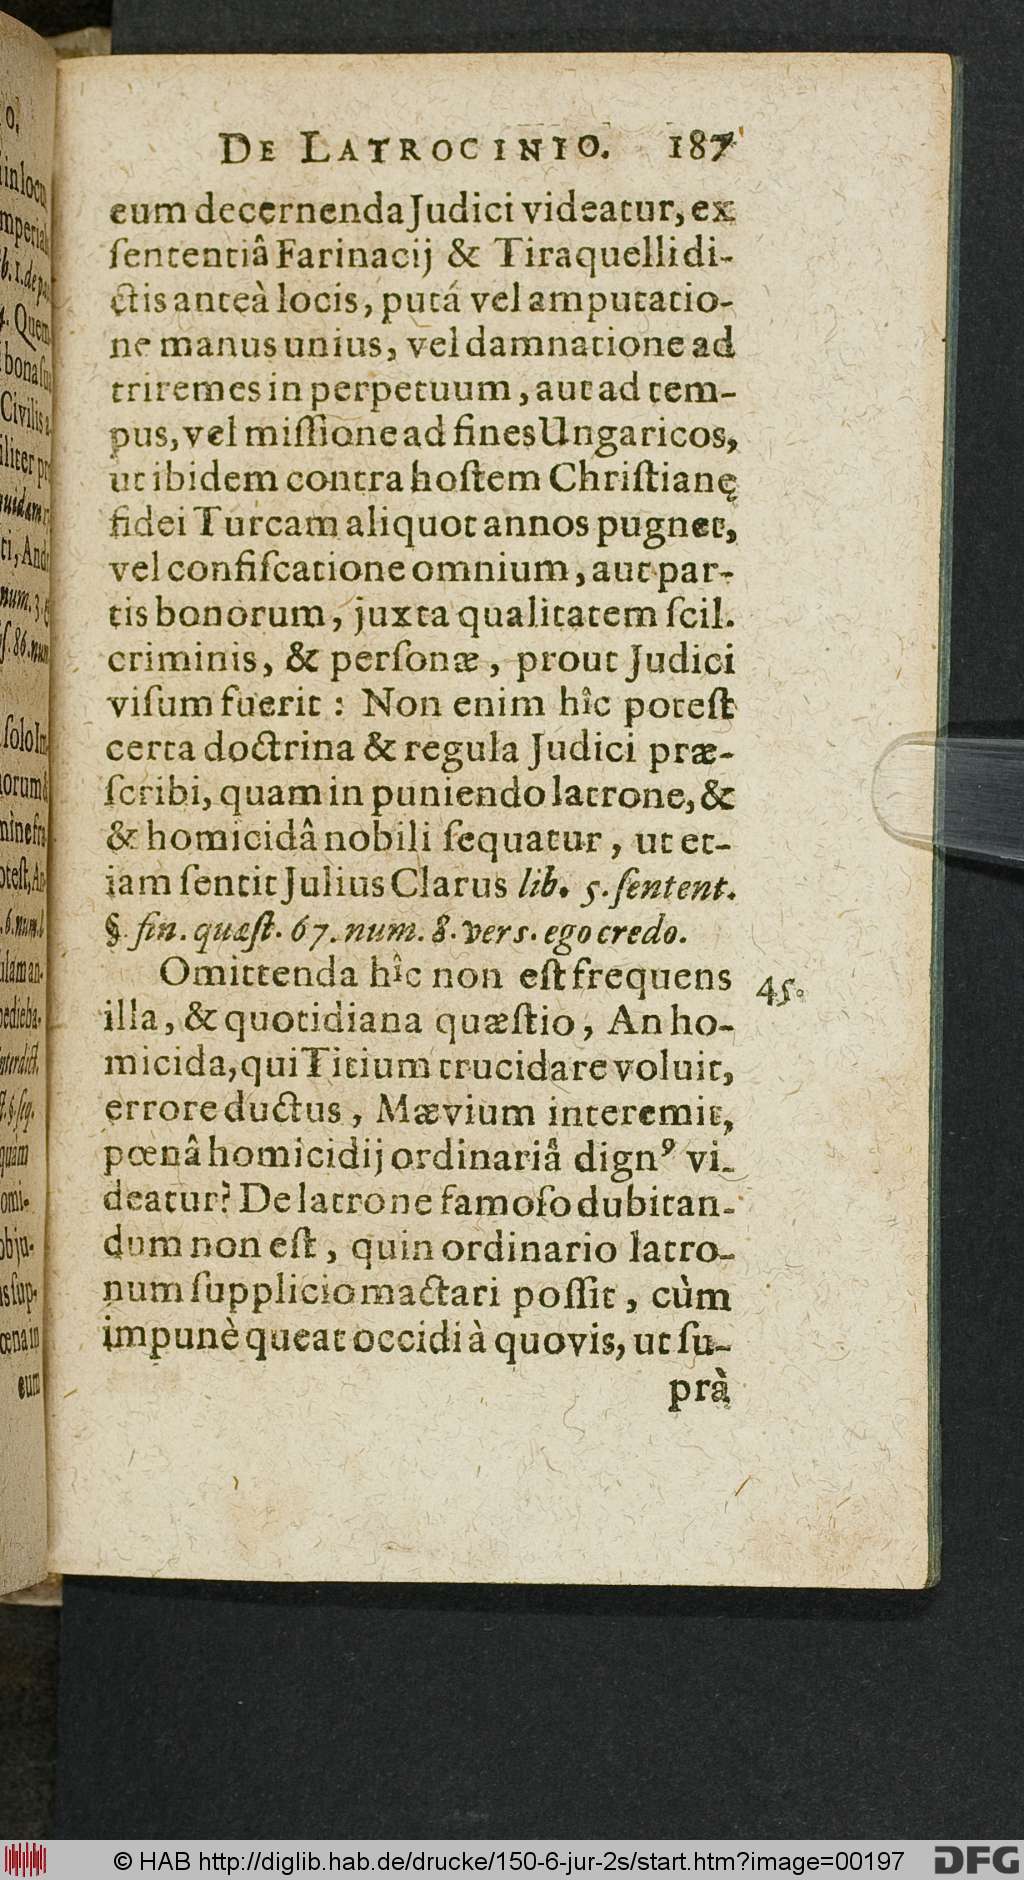 DE LATROCINIO. 187
eum decernenda Judici videatur, ex
ſententiâ Farinacij & Tiraquelli di-
ctis anteà locis, putá vel amputatio-
ne manus unius, vel damnatione ad
triremes in perpetuum, aut ad tem-
pus, vel miſſione ad fines Ungaricos,
ut ibidem contra hoſtem Chriſtianę
fidei Turcam aliquot annos pugnet,
vel confiſcatione omnium, aut par-
tis bonorum, juxta qualitatem ſcil.
criminis, & perſonæ, prout Judici
viſum fuerit: Non enim hîc poteſt
certa doctrina & regula Judici præ-
ſcribi, quam in puniendo latrone, &
& homicidâ nobili ſequatur, ut et-
iam ſentit Julius Clarus lib. 5. ſentent.
§ fin. quæſt. 67. num. 8. verſ. ego credo.
Omittenda hîc non eſt frequens 45.
illa, & quotidiana quæſtio, An ho-
micida, qui Titium trucidare voluit,
errore ductus, Mævium interemit,
pœnâ homicidij ordinariâ dignꝰ vi-
deatur? De latrone famoſo dubitan-
dum non eſt, quin ordinario latro-
num ſupplicio mactari poſſit, cùm
impunè queat occidi à quovis, ut ſu-
prà
© HAB http://diglib.hab.de/drucke/150-6-jur-2s/start.htm?image=00197
DFG